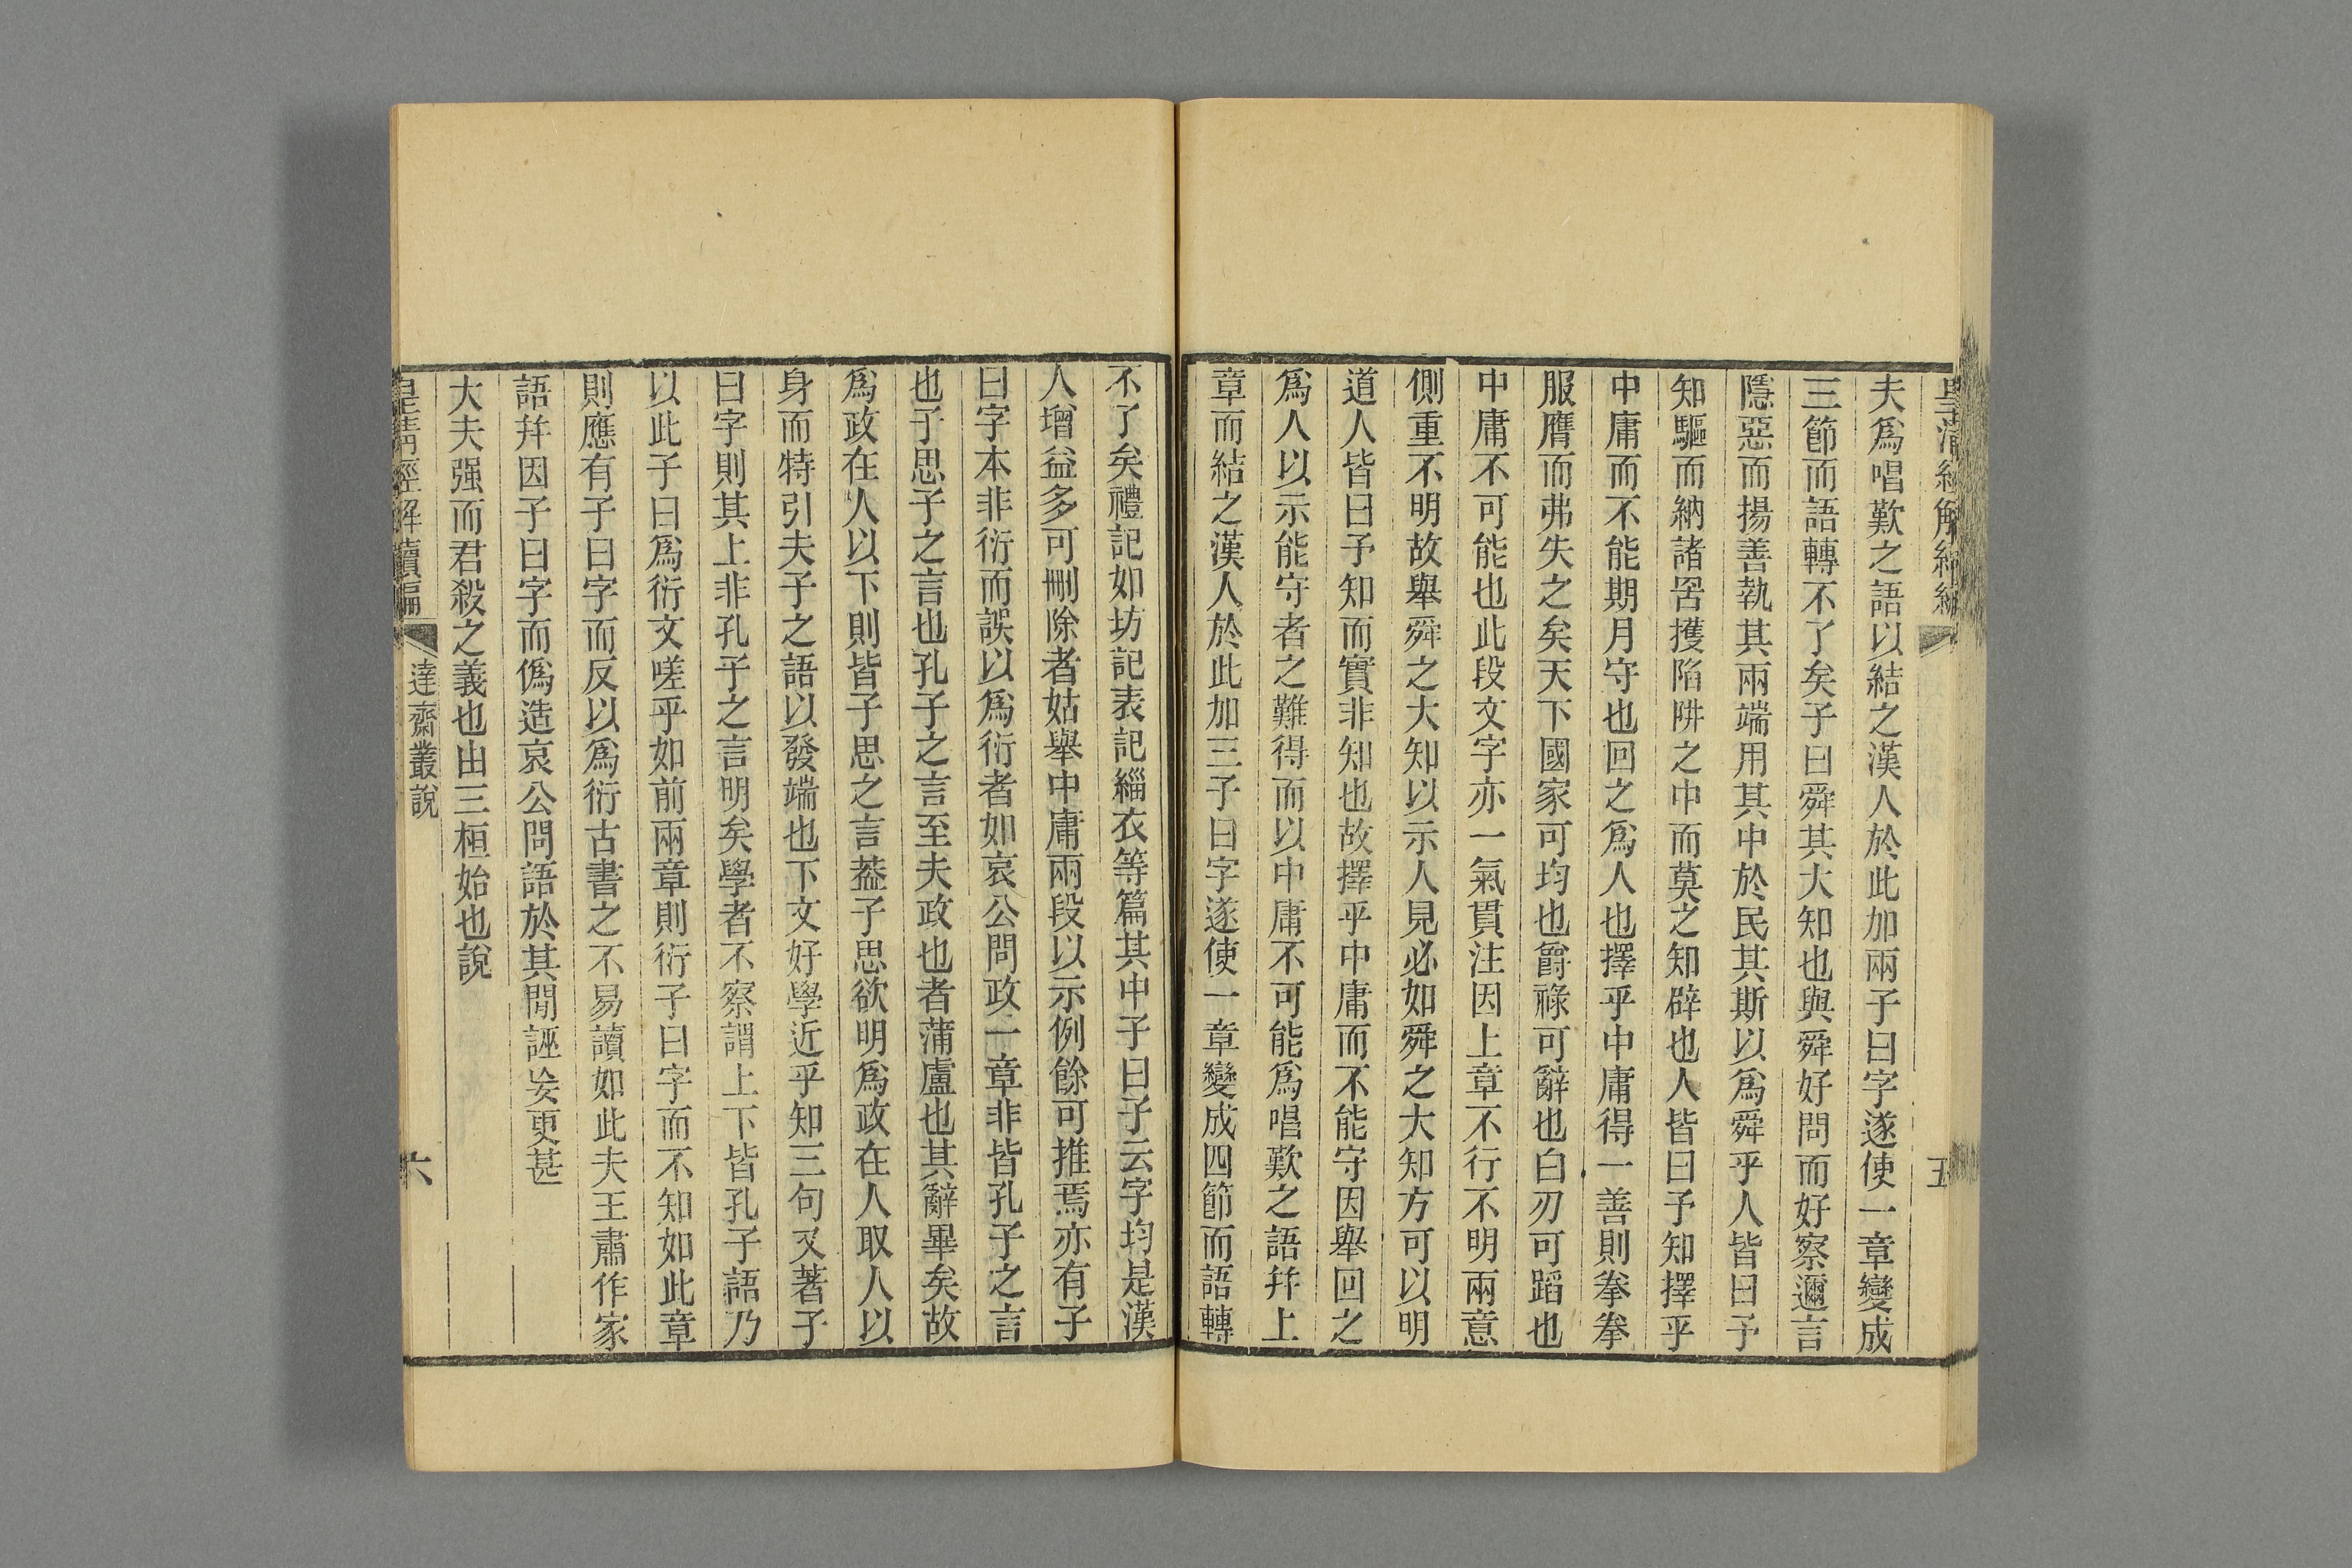 皇清經解續編
五
夫爲唱歎之語以結之漢人於此加兩子曰字遂使一章變成
三節而語轉不了矣子曰舜其大知也與舜好問而好察邇言
隱惡而揚善執其兩端用其中於民其斯以爲舜乎人皆曰予
知驅而納諸罟擭陷阱之中而莫之知辟也人皆曰予知擇乎
中庸而不能期月守也回之爲人也擇乎中庸得一善則拳拳
服膺而弗失之矣天下國家可均也爵祿可辭也白刃可蹈也
中庸不可能也此段文字亦一氣貫注因上章不行不明兩意
側重不明故舉舜之大知以示人見必如舜之大知方可以明
道人皆曰予知而實非知也故擇乎中庸而不能守因舉回之
爲人以示能守者之難得而以中庸不可能爲唱歎之語幷上
章而結之漢人於此加三子曰字遂使一章變成四節而語轉
不了矣禮記如坊記表記緇衣等篇其中子曰子云字均是漢
人增益多可刪除者姑舉中庸兩段以示例餘可推焉亦有子
曰字本非衍而誤以爲衍者如哀公問政一章非皆孔子之言
也子思子之言也孔子之言至夫政也者蒲盧也其辭畢矣故
爲政在人以下則皆子思之言葢子思欲明爲政在人取人以
身而特引夫子之語以發端也下文好學近乎知三句又著子
曰字則其上非孔子之言明矣學者不察謂上下皆孔子語乃
以此子曰爲衍文嗟乎如前兩章則衍子曰字而不知如此章
則應有子曰字而反以爲衍古書之不易讀如此夫王肅作家
語幷因子曰字而僞造哀公問語於其閒誣妄更甚
大夫强而君殺之義也由三桓始也說
皇清經解續編
達齋叢說
六